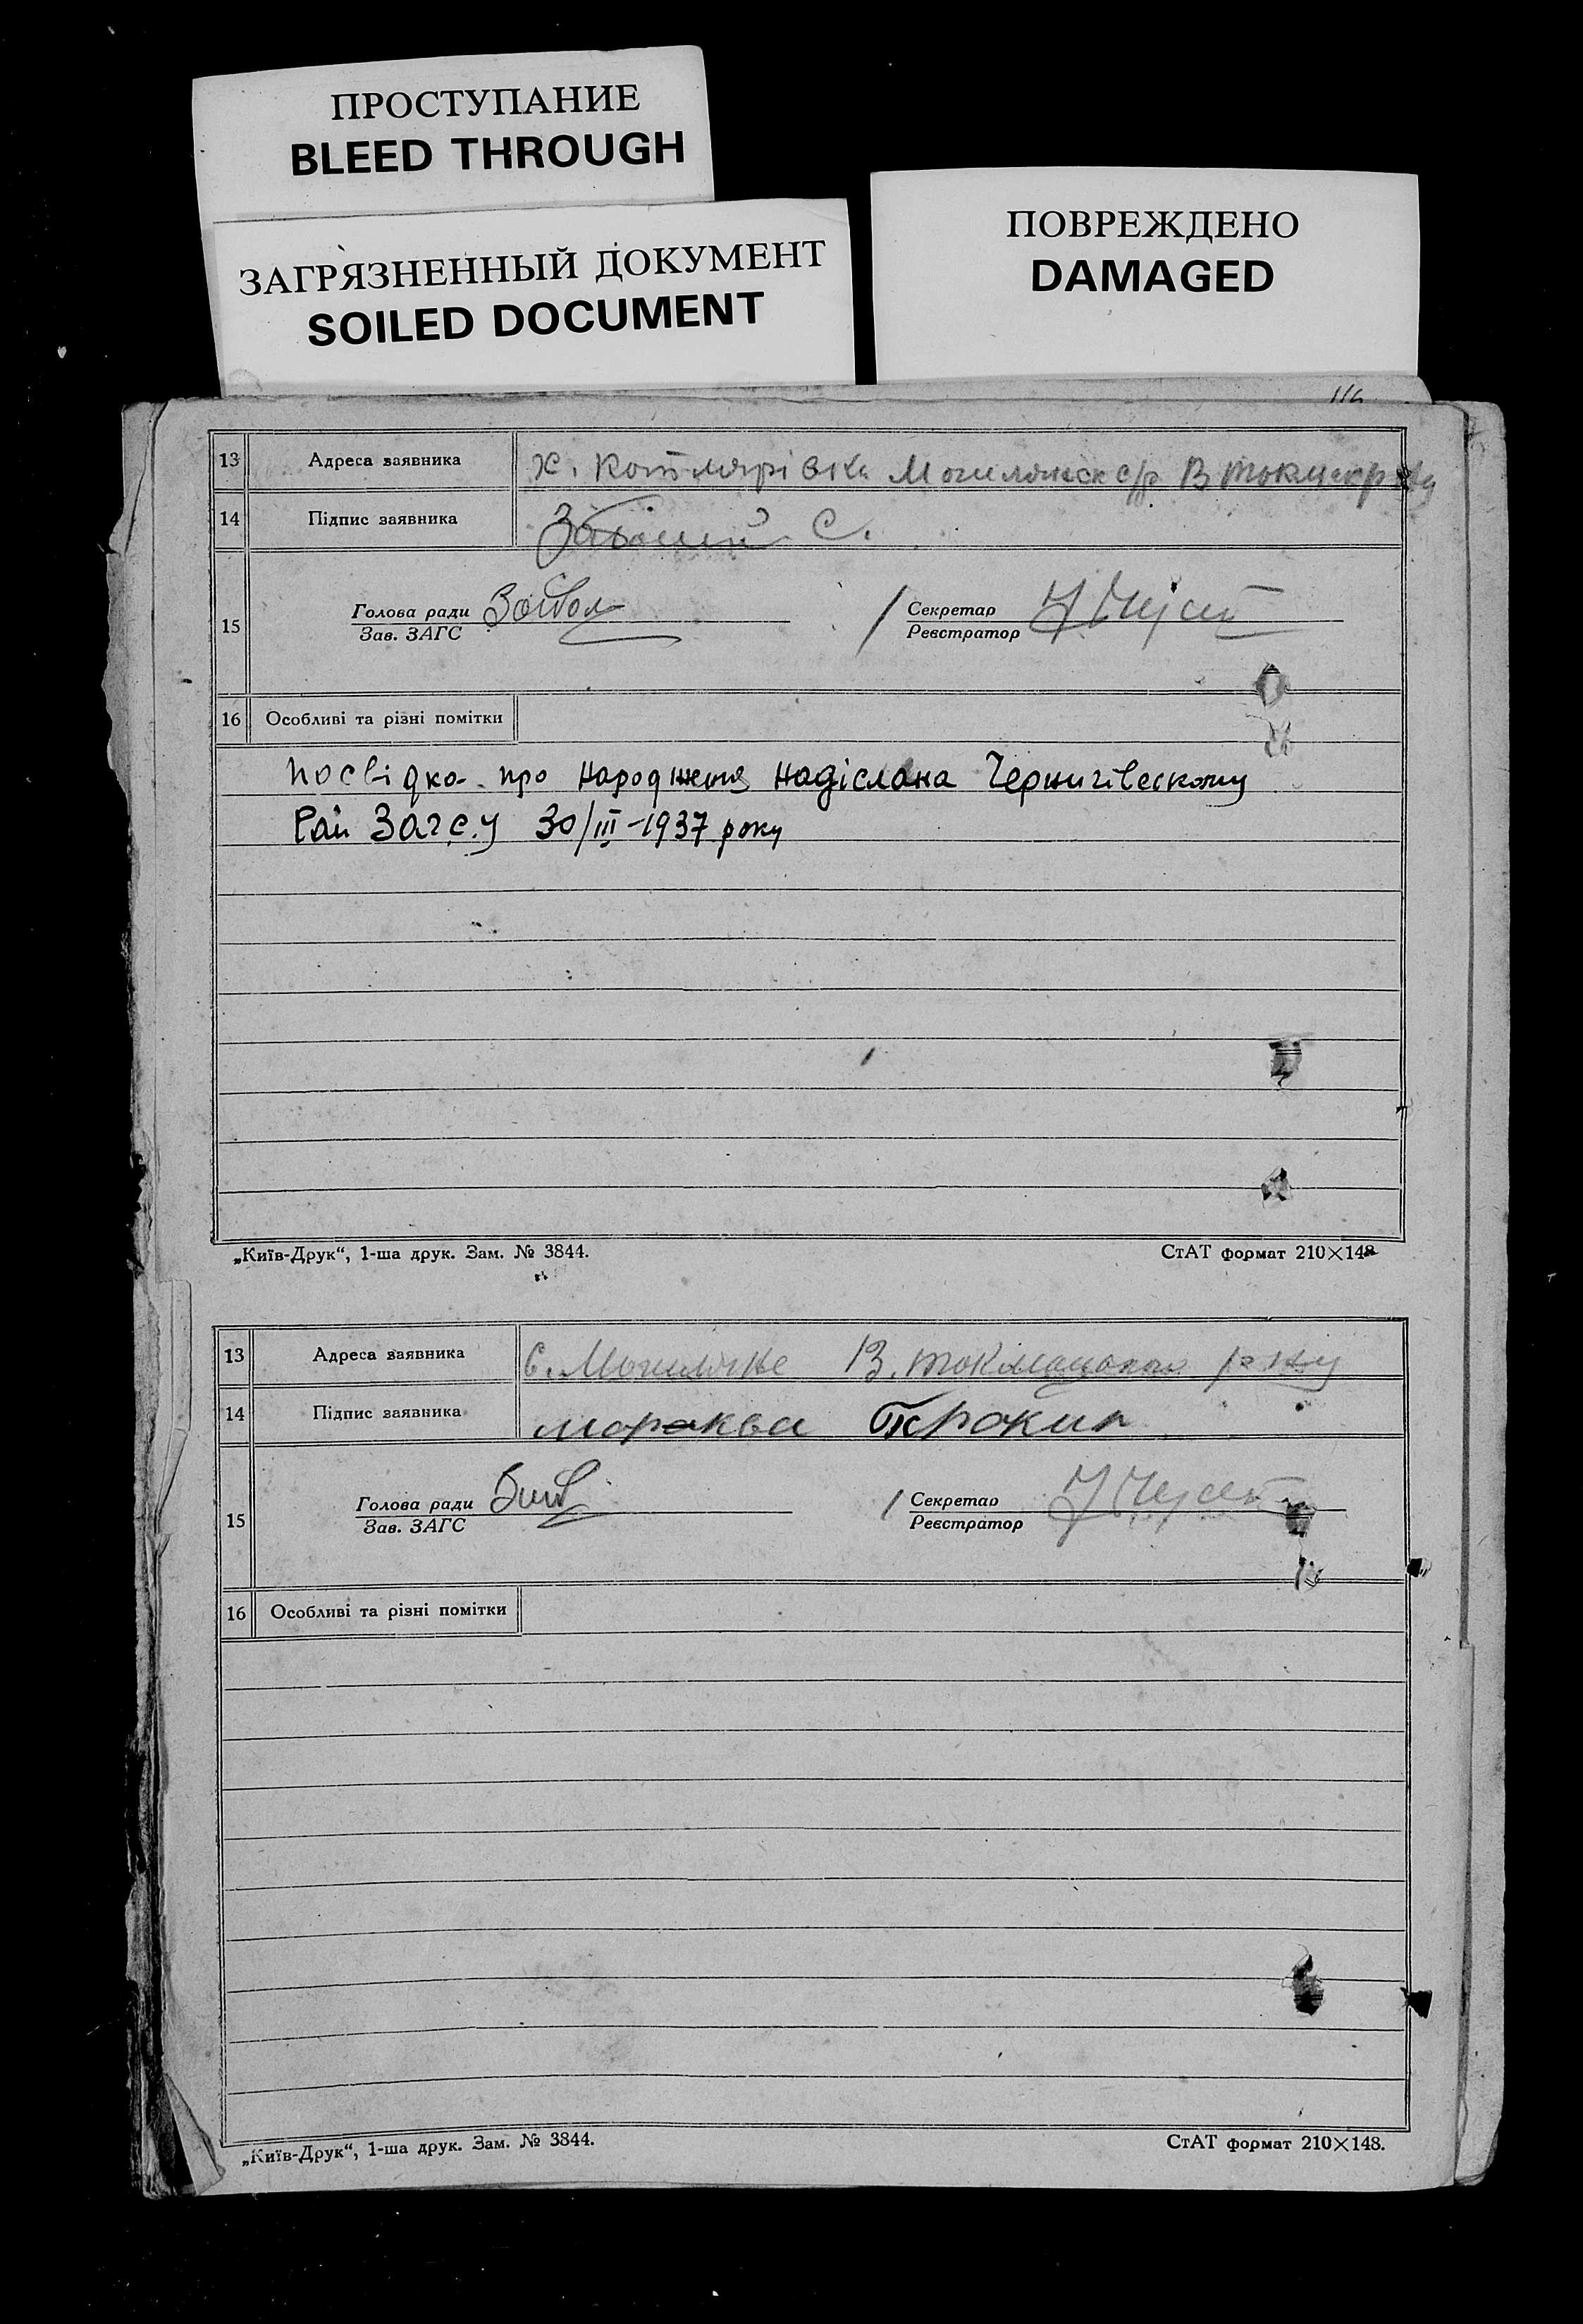 ПРОСТУПАНИЕ
BLEED THROUGH
ЗАГРЯЗНЕННЫЙ ДОКУМЕНТ
SOILED DOCUMENT
ПОВРЕЖДЕНО
DAMAGED
116
13 Адреса заявника х. Котлярівка Могилянск с/р В Токмакр
14 Підпис заявника С.
15 Голова ради Секретар
Зав. ЗАГС Реєстратор
16 Особливі та різні помітки
Посвідка про народження надіслана Чернигівескому
Рай Загсу 30/III-1937 року
„Київ-Друк“, 1-ша друк. Зам. № 3844. СтАТ формат 210×148
13 Адреса заявника с. Могиляне В. Токмацького р-ну
14 Підпис заявника морква Прокип
15 Голова ради Секретар
Зав. ЗАГС Реєстратор
16 Особливі та різні помітки
„Київ-Друк“, 1-ша друк. Зам. № 3844. СтАТ формат 210×148.